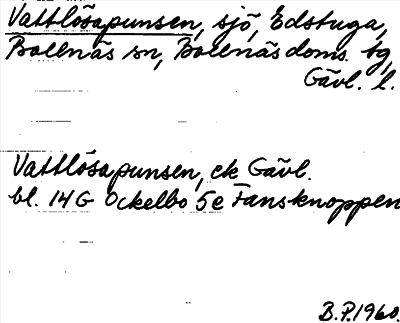 Vattlösapunsen, sjö, Edstuga,
Bollnäs sn, Bollnäs doms. tg,
Gävl. l.
Vattlösapunsen, ek Gävl.
bl. 14G Ockelbo 5e Fansknoppen
B.P. 1960.